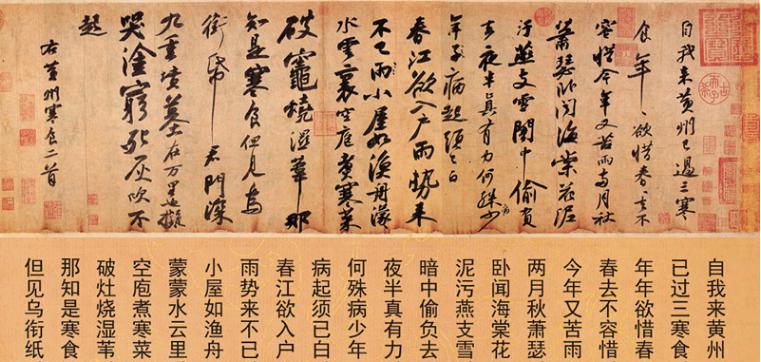 自我来黄州已過三寒
食年〻欲惜春〻去不
容惜今年又苦雨兩月秋
蕭瑟卧聞海棠花泥
汙燕支雪闇中偷負
去夜半真有力何殊少
年子病起頭已白
春江欲入户雨勢来
不已雨小屋如漁舟濛〻
水雲裏空庖煮寒菜
破竈燒濕葦那
知是寒食但見烏
銜帋君門深
九重墳墓在万里也擬
哭塗窮死灰吹不
起
右黄州寒食二首
自我来黄州
已过三寒食
年年欲惜春
春去不容惜
今年又苦雨
两月秋萧瑟
卧闻海棠花
泥污燕支雪
暗中偷负去
夜半真有力
何殊病少年
病起须已白
春江欲入户
雨势来不已
小屋如渔舟
蒙蒙水云里
空庖煮寒菜
破灶烧湿苇
那知是寒食
但见乌衔纸